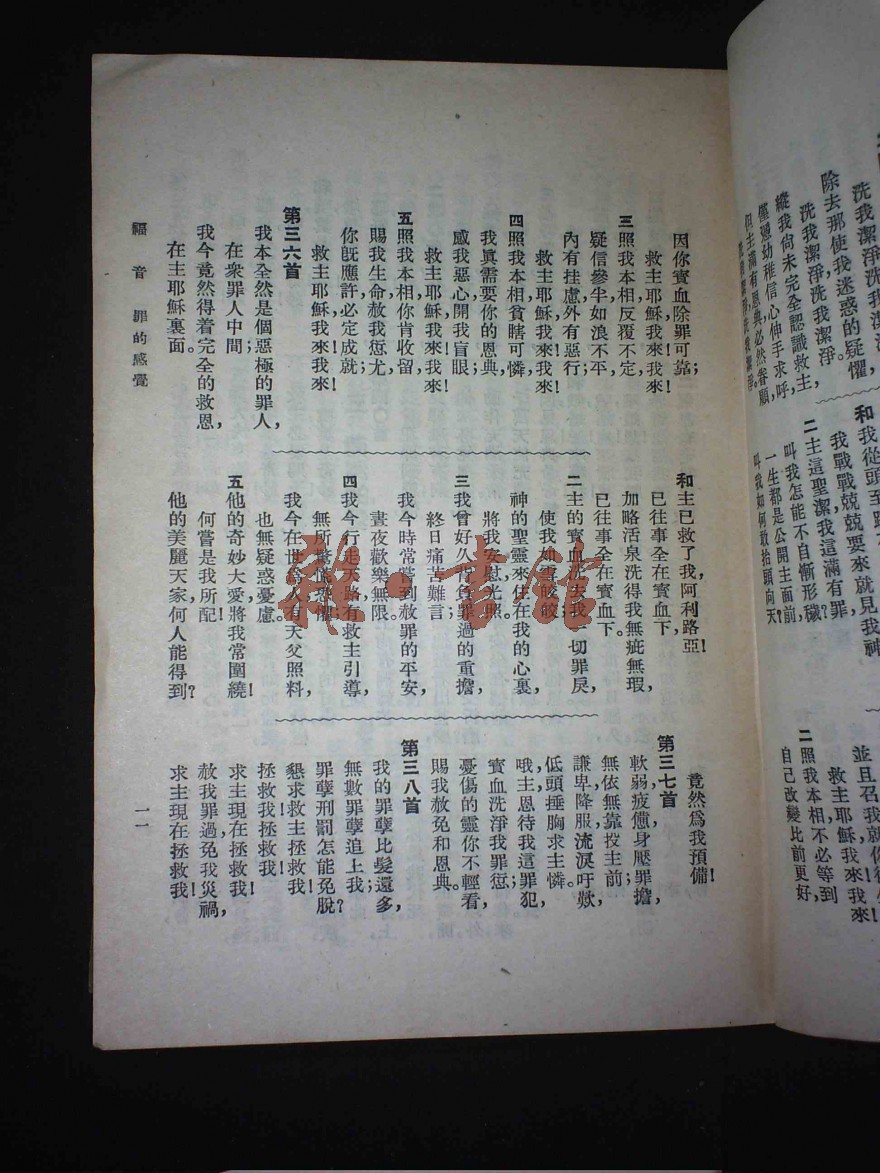 洗我潔淨洗我潔淨。
除去那使我迷惑的疑懼，
洗我潔淨洗我潔淨。
縱我尚未完全認識救主，
僅憑幼稚信心伸手求呼，
但主滿有恩典必然眷顧，
洗我潔淨洗我潔淨。
和我從頭至
我戰戰兢兢要來就見我神
二主這聖潔我這滿有罪
叫我怎能不自慚形穢？
一生都是公開主面前，
叫我如何敢抬頭向天？
並且召我就你
救主耶穌我來！我來！
二照我本相不必等到
自己改變比前更好，
因你寶血除罪可靠；
救主耶穌我來！我來！
三照我本相反覆不定，
疑信參半如浪不平，
內有挂慮外有惡行；
救主耶穌我來！我來！
四照我本相貧瞎可憐，
我眞需要你的恩典，
感我惡心開我盲眼；
救主耶穌我來！我來！
五照我本相你肯收留，
賜我生命赦我愆尤，
你旣應許必定成就；
救主耶穌我來！我來！
第三六首
我本全然是個惡極的罪人，
在衆罪人中間；
我今竟然得着完全的救恩，
在主耶穌裏面。
和主已救了我，阿利路亞！
已往事全在寶血下，
加略活泉洗得我無疵無瑕，
已往事全在寶血下。
二主的寶血洗去我一切罪戾，
使我如雪皎皎；
神的聖靈來住在我的心裏，
將我安慰光照。
三我曾好久背負罪過的重擔，
終日痛苦難言；
我今時常嘗到赦罪的平安，
晝夜歡樂無限。
四我今行走天路有救主引導，
無所驚慌恐懼；
我今在世爲人有天父照料，
也無疑惑憂慮。
五他的奇妙大愛將我常圍繞！
何嘗是我所配！
他的美麗天家，何人能得到？
竟然爲我預備！
第三七首
軟弱，疲憊，身壓罪擔，
無依無靠投主前；
謙卑降服，流淚吁歎，
低頭捶胸求主憐。
哦，主，恩待我這罪犯，
寶血洗淨我罪愆；
憂傷的靈你不輕看，
賜我赦免和恩典。
第三八首
我的罪孽比髮還多，
無數罪孽追上我；
罪孽刑罰怎能免脫？
懇求救主拯救我！
拯救我！拯救我！
求主現在拯救我！
赦我罪過免我災禍，
求主現在拯救我！
福音 罪的感覺
一一
雜·書館